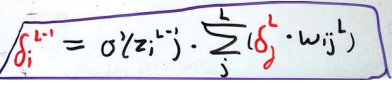 δᵢᴸ⁻¹ = σ'(zᵢᴸ⁻¹) · ∑ⱼᴸ (δⱼᴸ · wᵢⱼᴸ)